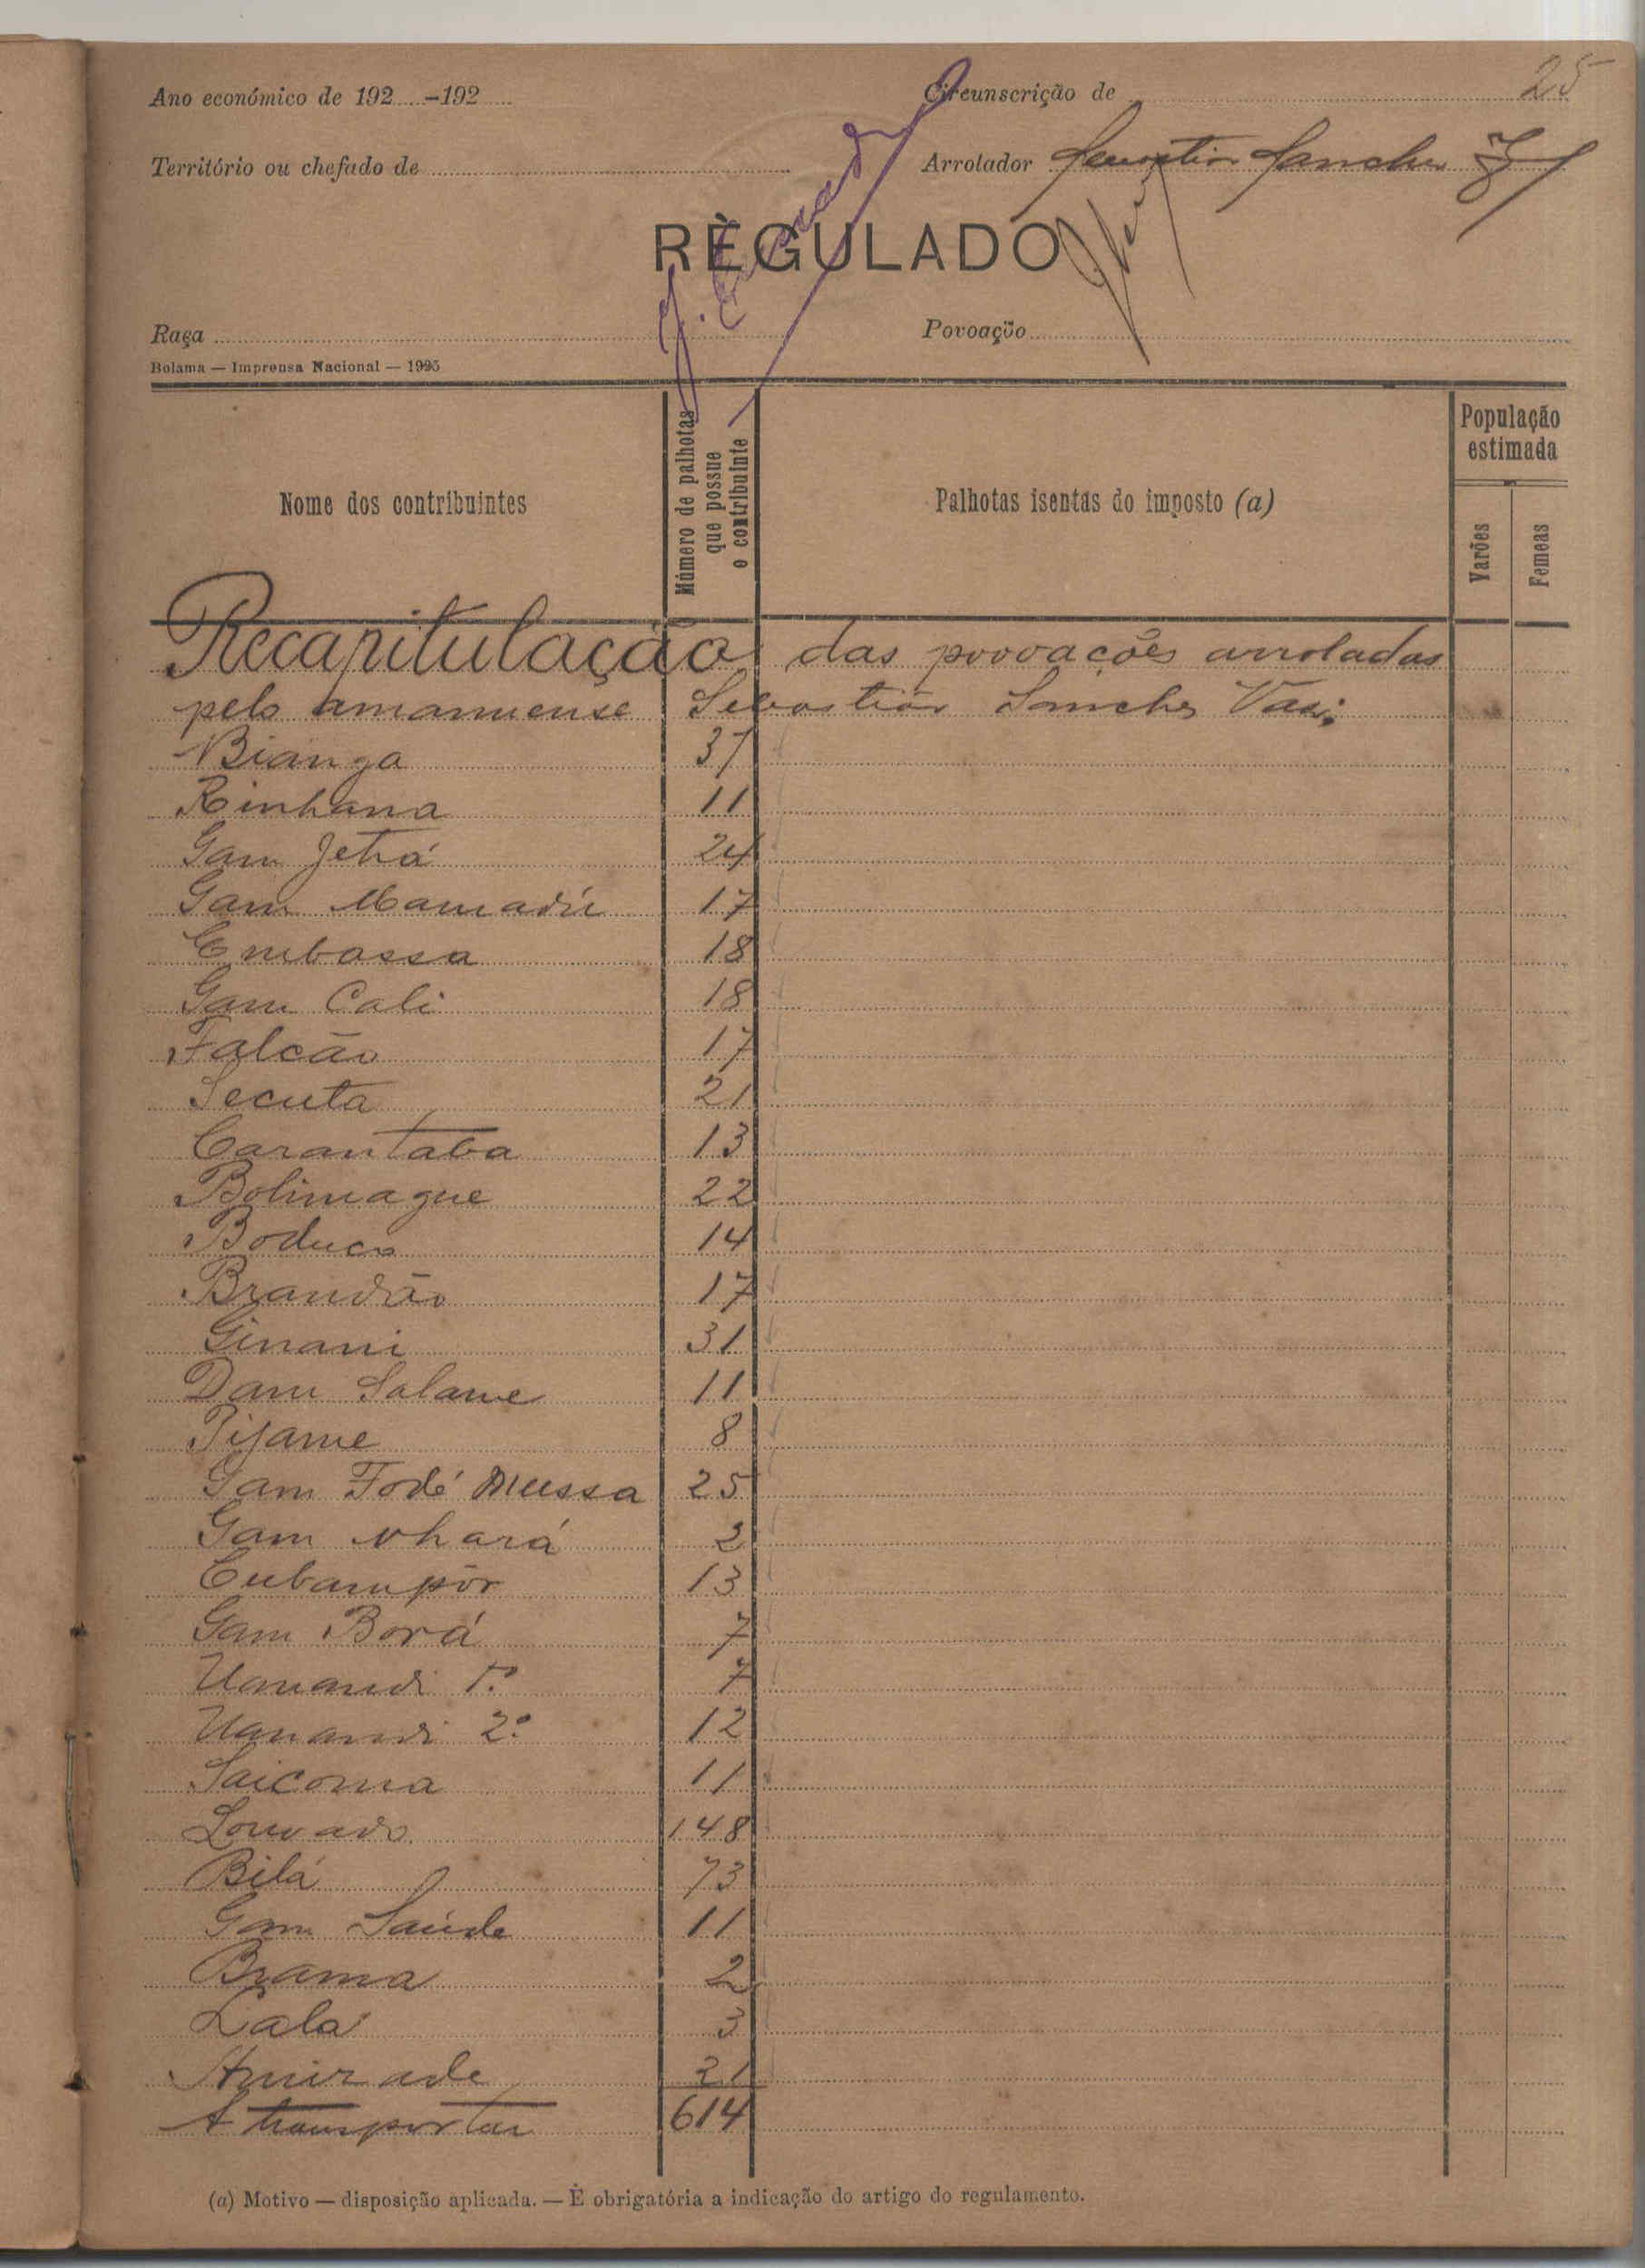 25
Ano económico de 192.....-192.....
Circunscrição de
Território ou chefado de
Arrolador Sebastião Sanches
RÈGULADO
Raça
Povoação
Bolama — Imprensa Nacional — 1925
Nome dos contribuintes
Número de palhotas que possue o contribuinte
Palhotas isentas do imposto (a)
População estimada
Varões
Femeas
Recapitulação das povoações arroladas
pelo amanuense Sebastião Sanches Vaz:
Bianga 37
Rinhana 11
Gam Jetrá 24
Gam Mamadú 17
Embassa 18
Gam Cali 18
Falcão 17
Secuta 21
Carantaba 13
Bolimague 22
Boduco 14
Brandão 17
Ginani 31
Dam Salame 11
Pijame 8
Gam Fodé Mussa 25
Gam Nhará 2
Cubampôr 13
Gam Borá 7
Uanandi 1.º 7
Uanandi 2.º 12
Saicoma 11
Louvado 148
Bilá 73
Gam Saúde 11
Brama 2
Lala 3
21
A transportar 614
(a) Motivo — disposição aplicada. — È obrigatória a indicação do artigo do regulamento.